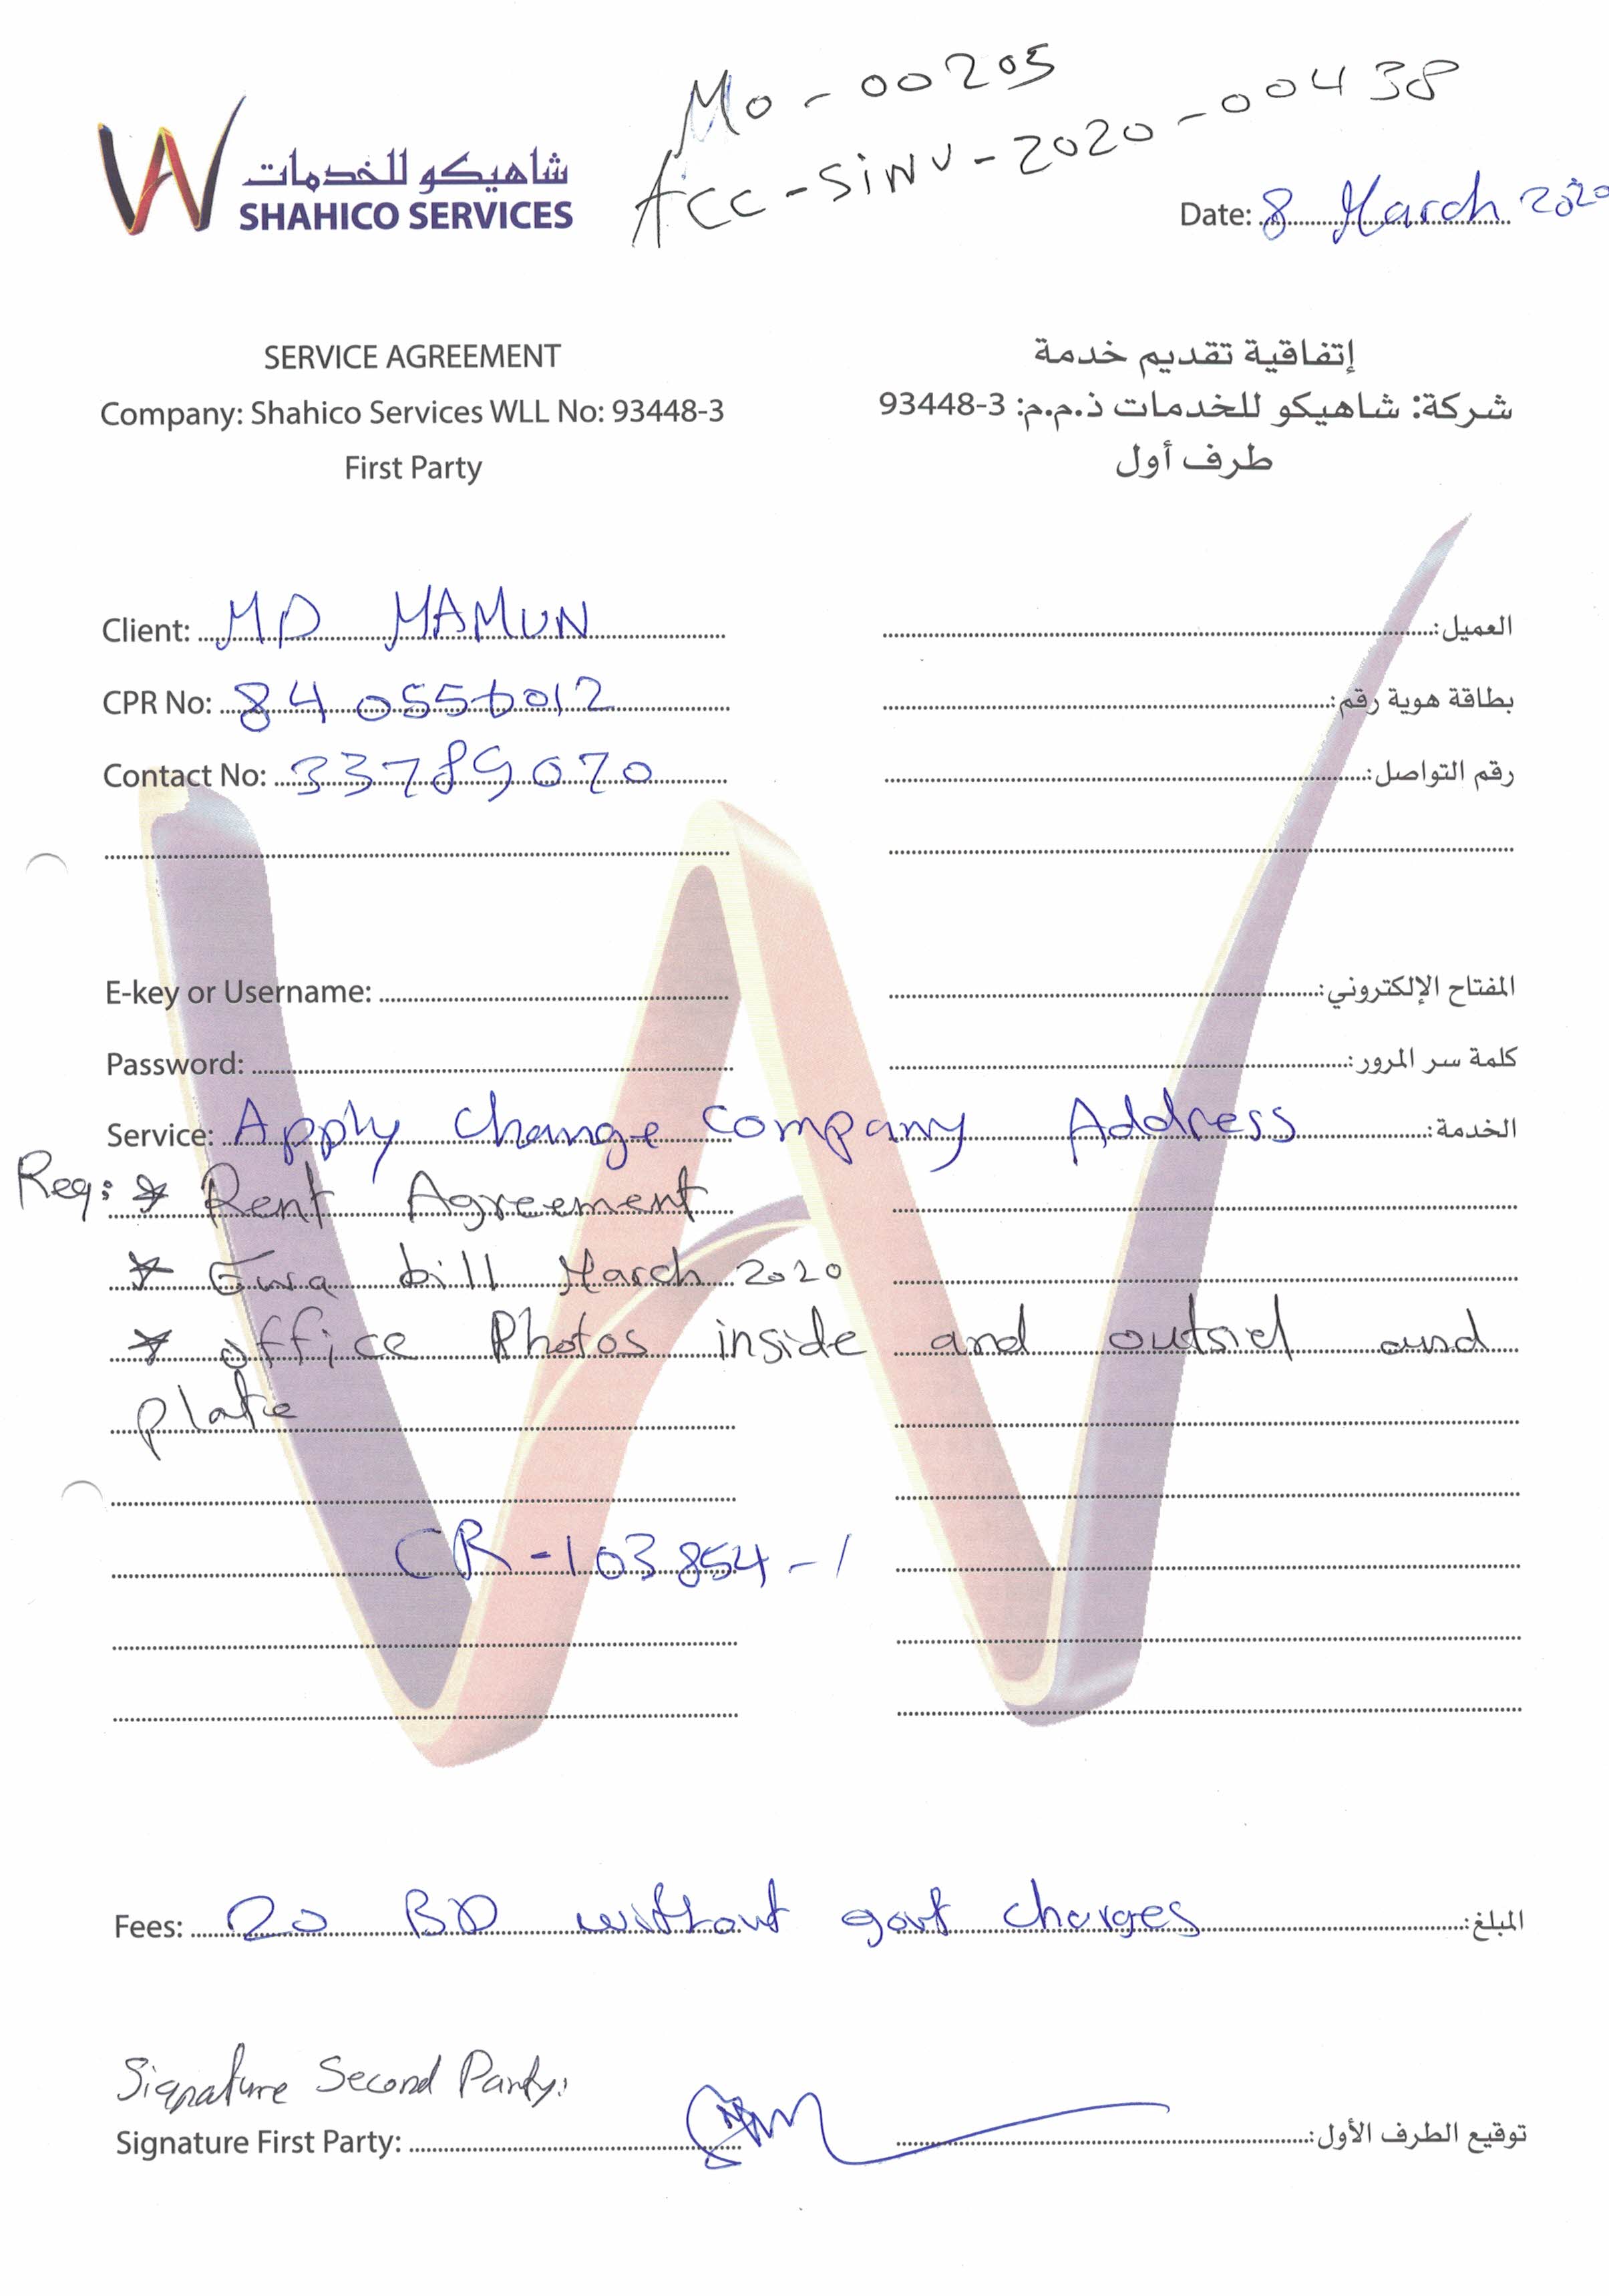 Mo - 00205
Acc - SiNV - 2020 - 00438
شاهيكو للخدمات
SHAHICO SERVICES
Date: 8 March 2020
SERVICE AGREEMENT
إتفاقية تقديم خدمة
Company: Shahico Services WLL No: 93448-3
شركة: شاهيكو للخدمات ذ.م.م: 3-93448
First Party
طرف أول
Client: MD MAMUN العميل:
CPR No: 840556012 بطاقة هوية رقم:
Contact No: 33789070 رقم التواصل:
E-key or Username: المفتاح الإلكتروني:
Password: كلمة سر المرور:
Service: Apply change company Address الخدمة:
Req: * Rent Agreement
* Ewa bill March 2020
* office Photos inside and outsid and
plate
CR - 103854 - 1
Fees: 20 BD without govt charges المبلغ:
Signature Second Party:
Signature First Party: توقيع الطرف الأول: